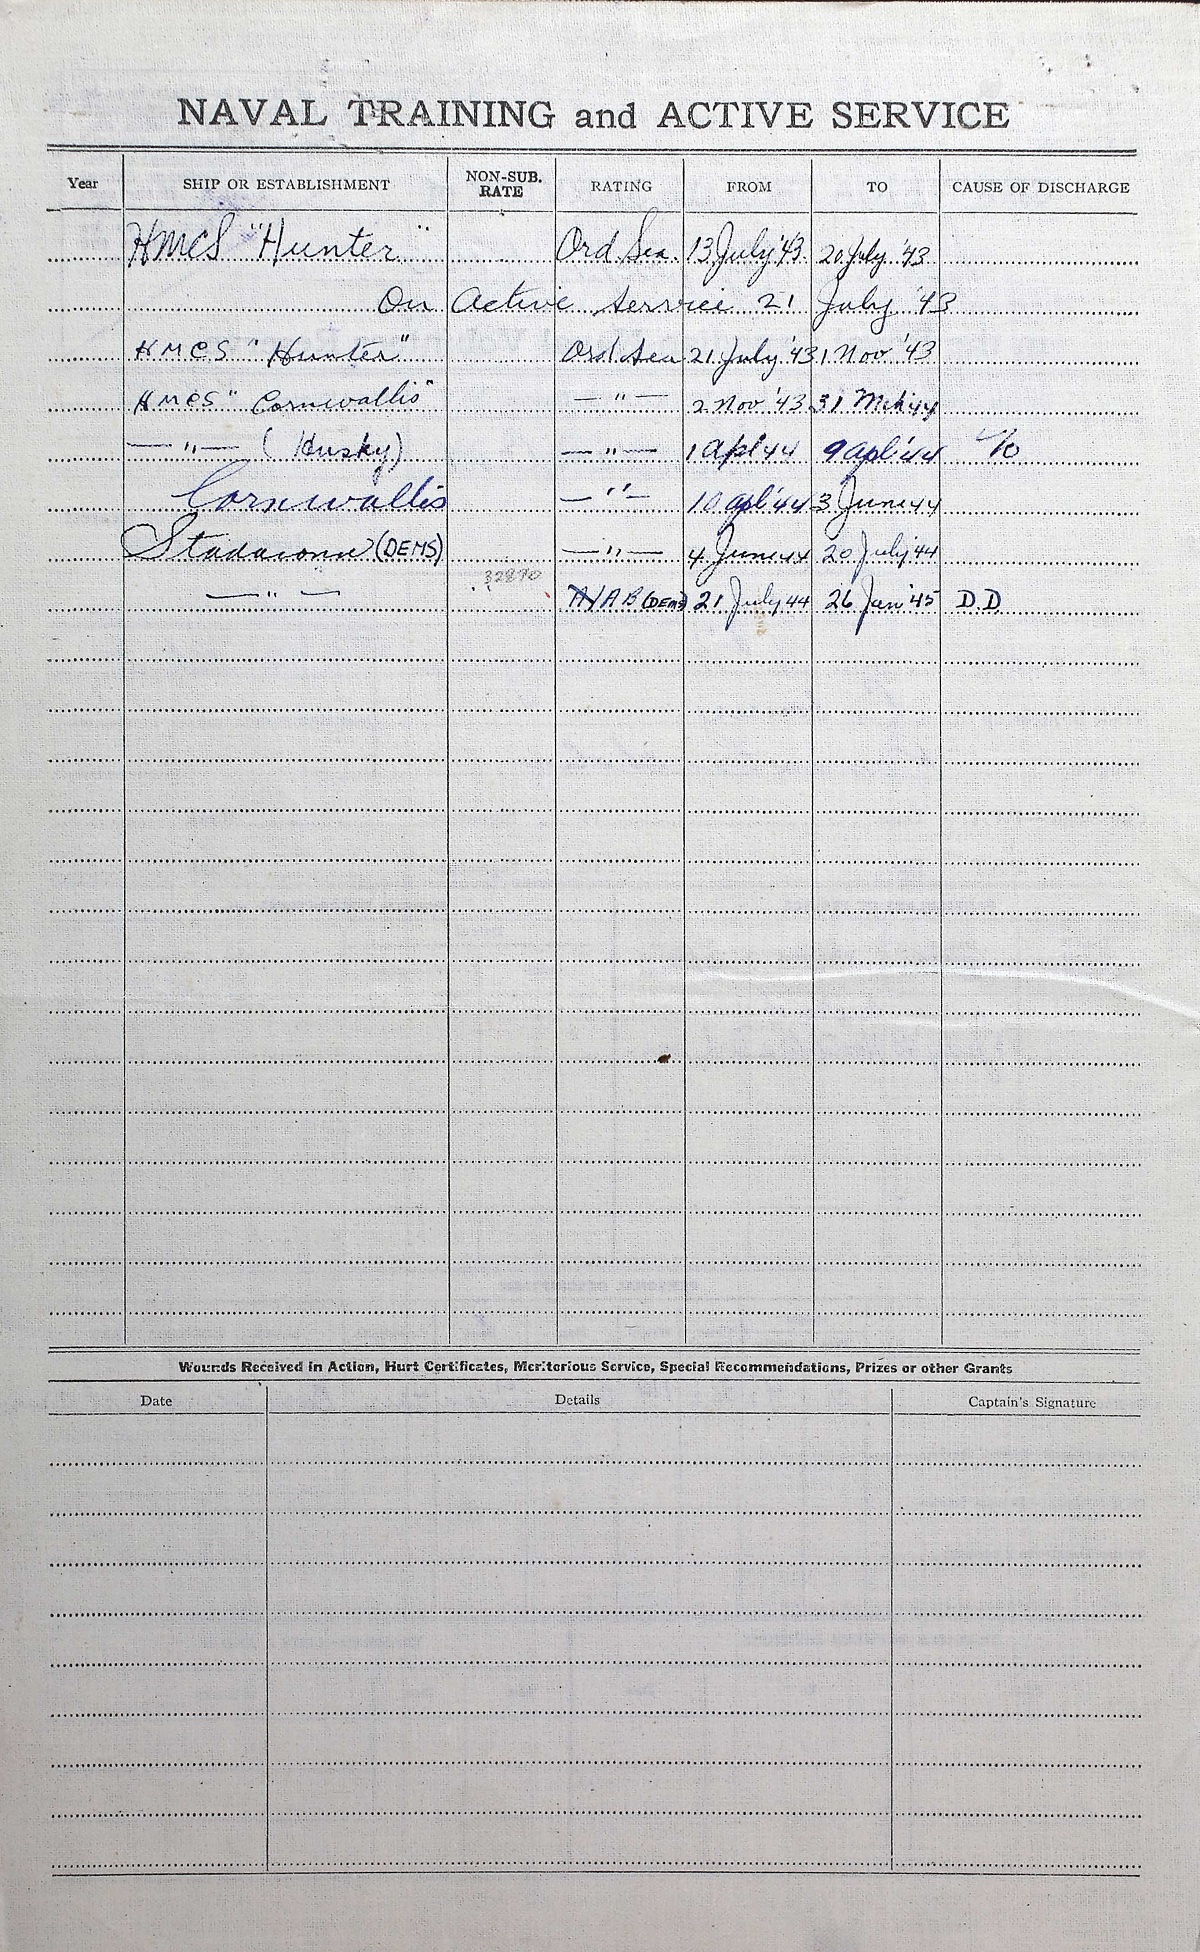 NAVAL TRAINING and ACTIVE SERVICE
Year SHIP OR ESTABLISHMENT NON-SUB. RATE RATING FROM TO CAUSE OF DISCHARGE
HMCS "Hunter" Ord. Sea. 13 July '43. 20 July '43
On Active Service 21 July '43
HMCS "Hunter" Ord. Sea 21 July '43 1 Nov '43
HMCS "Cornwallis" — " — 2 Nov '43 31 Mch 44
— " — (Husky) — " — 1 Apl 44 9 Apl '44
Cornwallis — " — 10 Apl '44 3 June 44
Stadacona (DEMS) — " — 4 June 44 20 July '44
— " — 32870 A/AB (DEMS) 21 July 44 26 Jan '45 D.D
Wounds Received in Action, Hurt Certificates, Meritorious Service, Special Recommendations, Prizes or other Grants
Date Details Captain's Signature